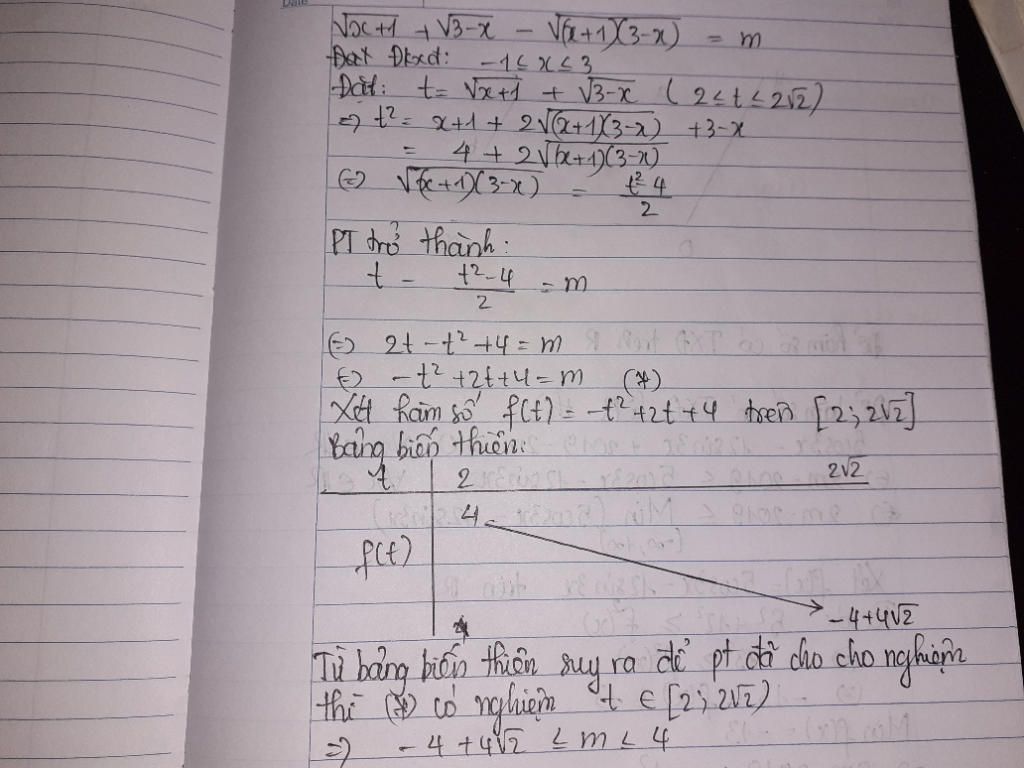 Date
√x+1 + √3-x - √(x+1)(3-x) = m
Đặt Đkxđ: -1 ≤ x ≤ 3
Đặt: t = √x+1 + √3-x ( 2 ≤ t ≤ 2√2)
=> t² = x+1 + 2√(x+1)(3-x) +3-x
= 4 + 2√(x+1)(3-x)
<=> √(x+1)(3-x) = t²-4 / 2
PT trở thành:
t - t²-4 / 2 = m
<=> 2t - t² +4 = m
<=> -t² +2t+4 = m (*)
Xét hàm số f(t) = -t²+2t+4 trên [2; 2√2]
Bảng biến thiên:
t 2 2√2
4
f(t)
-4+4√2
Từ bảng biến thiên suy ra để pt đã cho cho nghiệm
thì (*) có nghiệm t ∈ [2; 2√2)
=> -4 +4√2 ≤ m ≤ 4